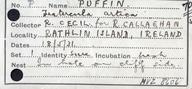 No. P Name PUFFIN.
Fratercula artica
Collector R. CECIL for R. CALLAGHAN
Locality RATHLIN ISLAND, IRELAND
Date 18/5/21.
Set 1 Identity true Incubation fresh
Nest In hole on cliff side